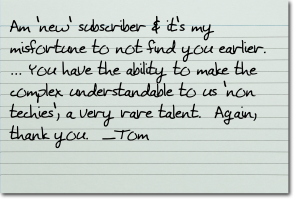 Am 'new' subscriber & it's my
misfortune to not find you earlier.
... You have the ability to make the
complex understandable to us 'non
techies', a very rare talent.  Again,
thank you.  _Tom